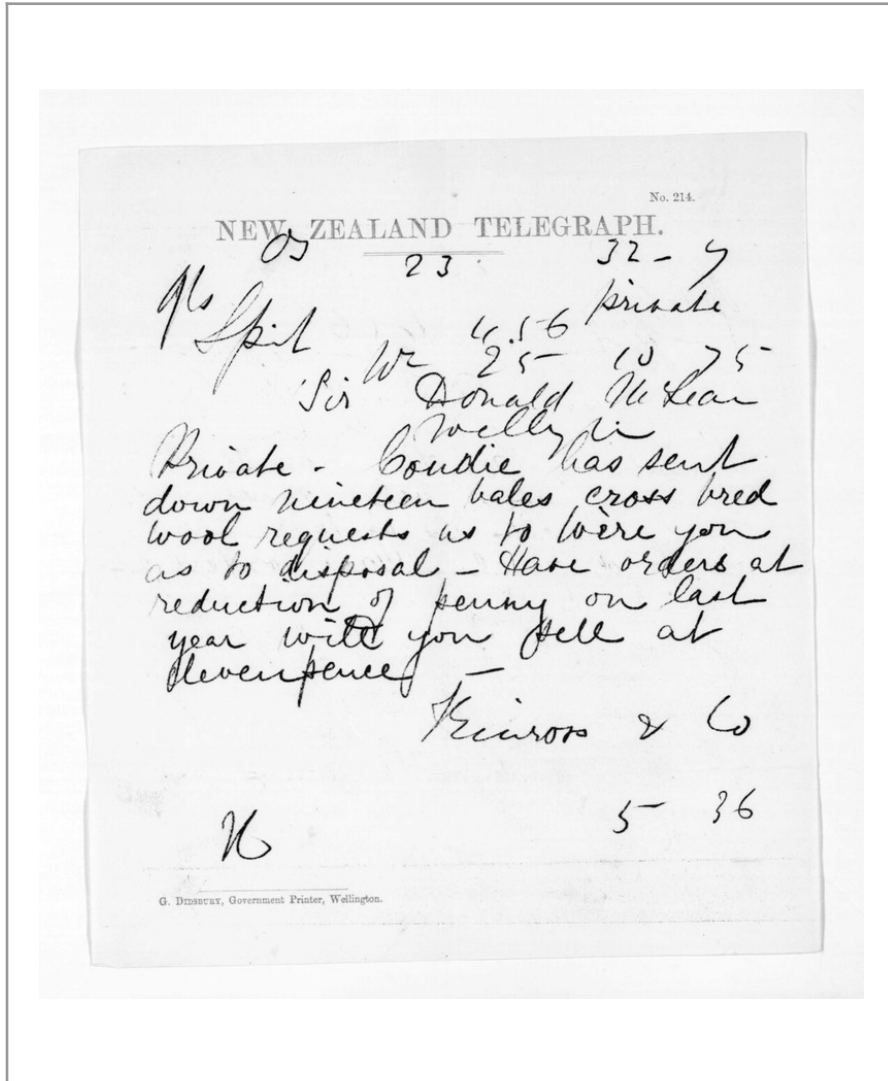 No. 214.
NEW ZEALAND TELEGRAPH.
23 32 - 7
private
Spit 4.56
25 10 75
Sir Donald McLean
Wellgtn
Private - Condie has sent
down nineteen bales cross bred
wool requests us to wire you
as to disposal - Have orders at
reduction of penny on last
year will you sell at
elevenpence -
Kinross & Co
5 36
G. DIDSBURY, Government Printer, Wellington.